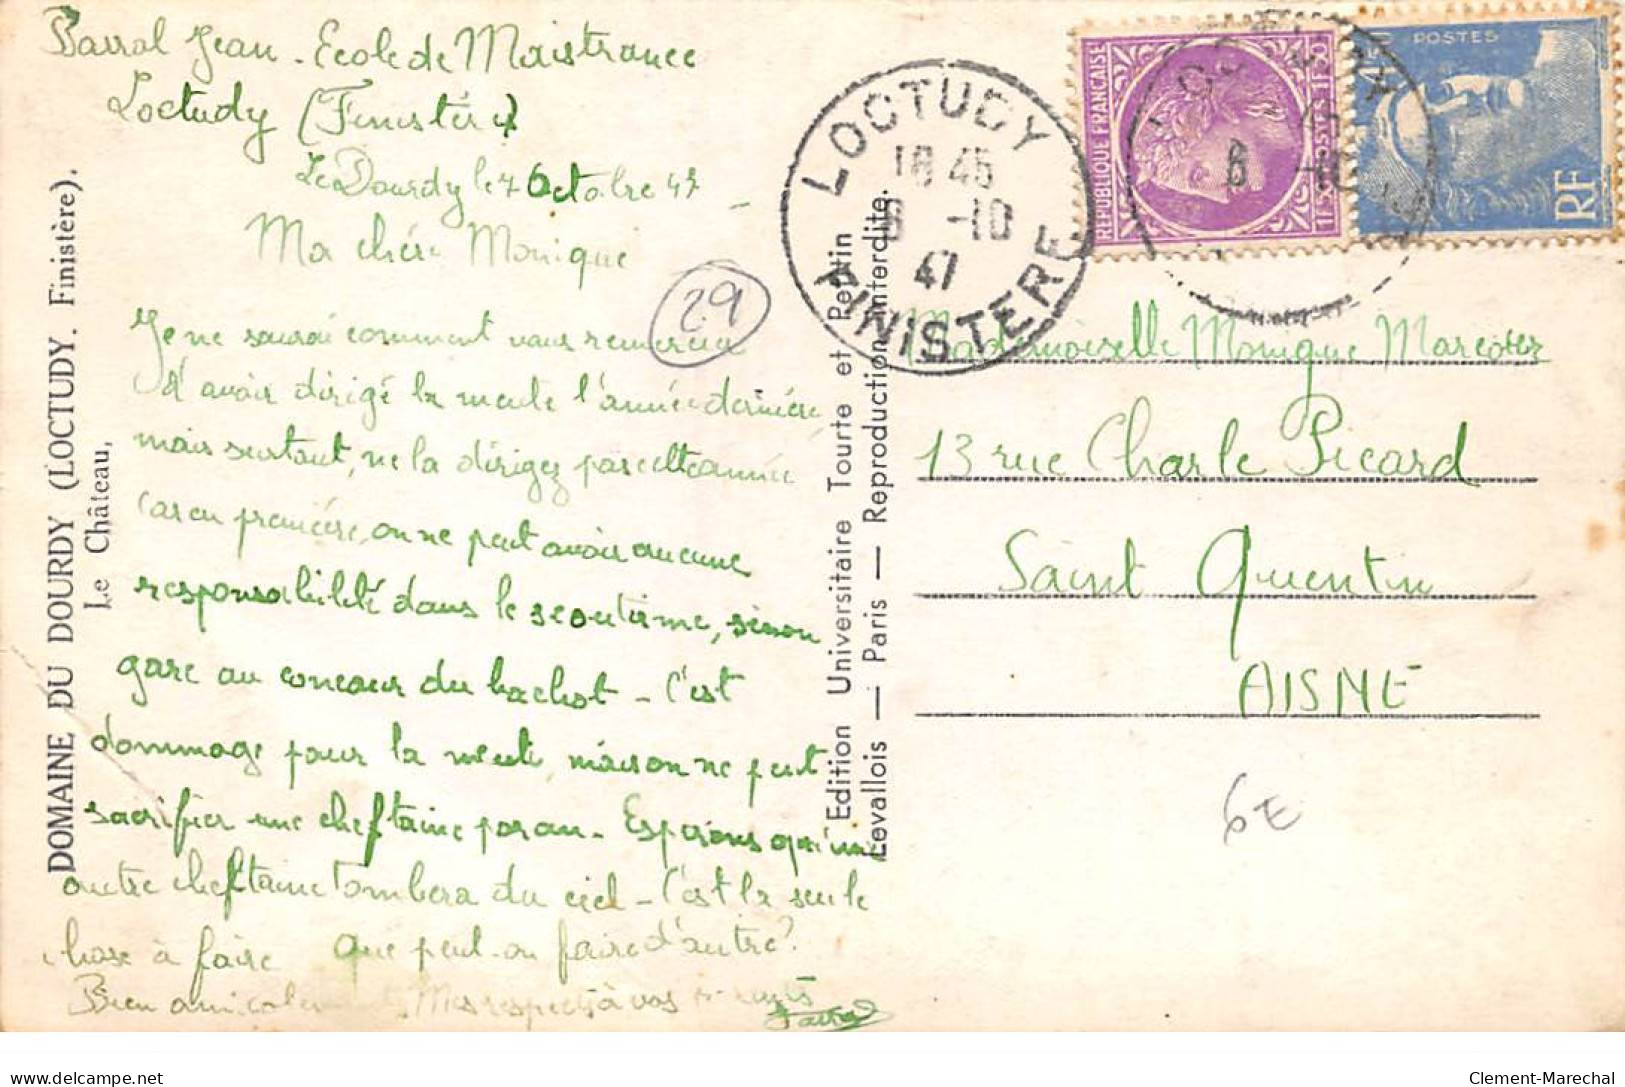 Barral Jean - Ecole de Maistrance
Loctudy (Finistère)
Le Dourdy le 7 Octobre 47
Ma chère Monique
Je ne saurai comment vous remercier
d'avoir dirigé la meute l'année dernière,
mais surtout, ne la dirigez pas cette année
car en première, on ne peut avoir aucune
responsabilité dans le scoutisme, sinon
gare au concours du bachot - C'est
dommage pour la meute, mais on ne peut
sacrifier une cheftaine par an - Espérons qu'une
autre cheftaine tombera du ciel - C'est la seule
chose à faire Que peut-on faire d'autre?
Bien amicalement, Mes respects à vos parents
29
DOMAINE DU DOURDY (LOCTUDY. Finistère).
Le Château,
Edition Universitaire Tourte et Petitin
Levallois — Paris — Reproduction interdite.
LOCTUDY
18 45
6 -10
47
FINISTERE
REPUBLIQUE FRANÇAISE
1F50 POSTES 1F50
POSTES
RF
6 -10
Mademoiselle Monique
13 rue Charle Picard
Saint Quentin
AISNE
6E
delcampe.net
Clement-Marechal